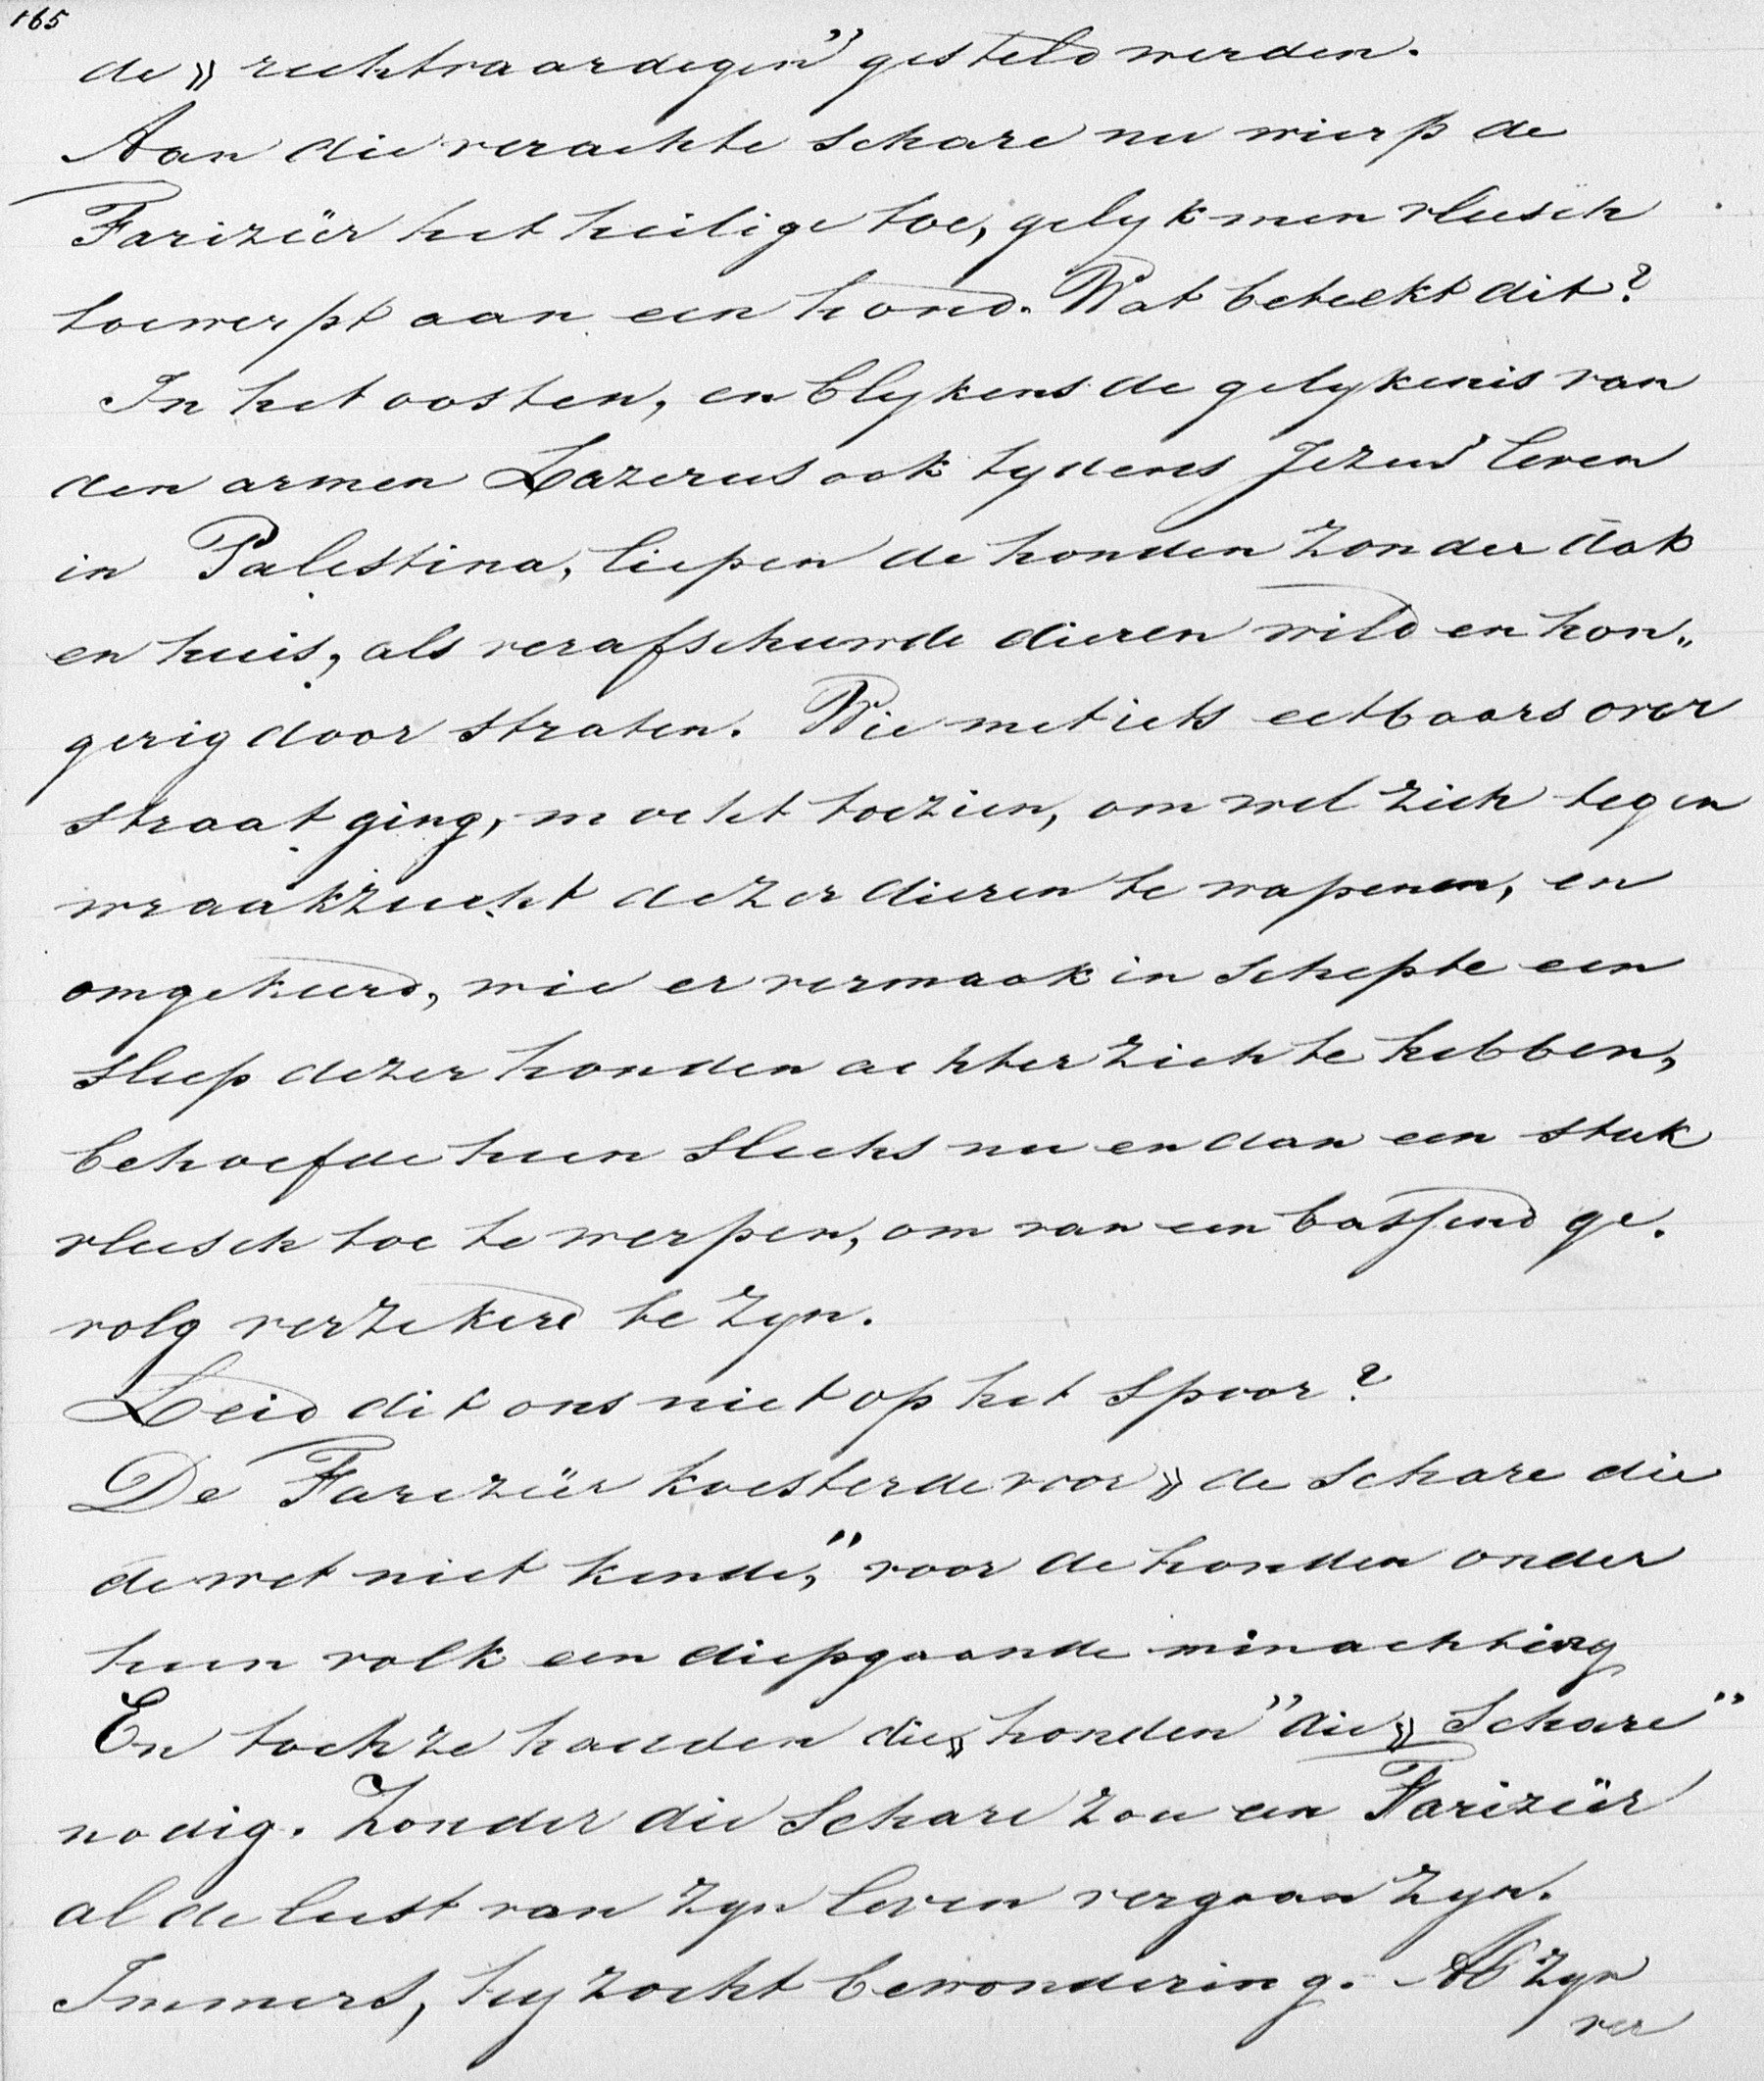 165
de „rechtvaardigen” gesteld werden.
Aan die verachte schare nu wierp de
Farizeër het heilige toe, gelyk men vleesch
toewerpt aan een hond. Wat beteekt dit?
In het oosten, en blykens de gelykenis van
den armen Lazerus ook tydens Jezus' leven
in Palestina, liepen de honden zonder dak
en huis, als verafschuwde dieren wild en hon„
gerig door straten. Wie met iets eetbaars over
straat ging, mocht toezien, om wel zich tegen
wraakzucht dezer dieren te wapenen, en
omgekeerd, wie er vermaak in schepte een
sleep dezer honden achter zich te hebben,
behoefde hun slechs nu en dan een stuk
vleesch toe te werpen, om van een bassend ge.
volg verzekerd te zyn.
Leid dit ons niet op het spoor?
De Farizeër koesterde voor „de schare die
de wet niet kende,” voor de honden onder
hun volk een diepgaande minachting
En toch ze hadden die „honden” die „Schare”
nodig. Zonder die Schare zou een Farizeër
al de lust van zyn leven vergaan zyn.
Immers, hy zocht bewondering. Al zyn
ver